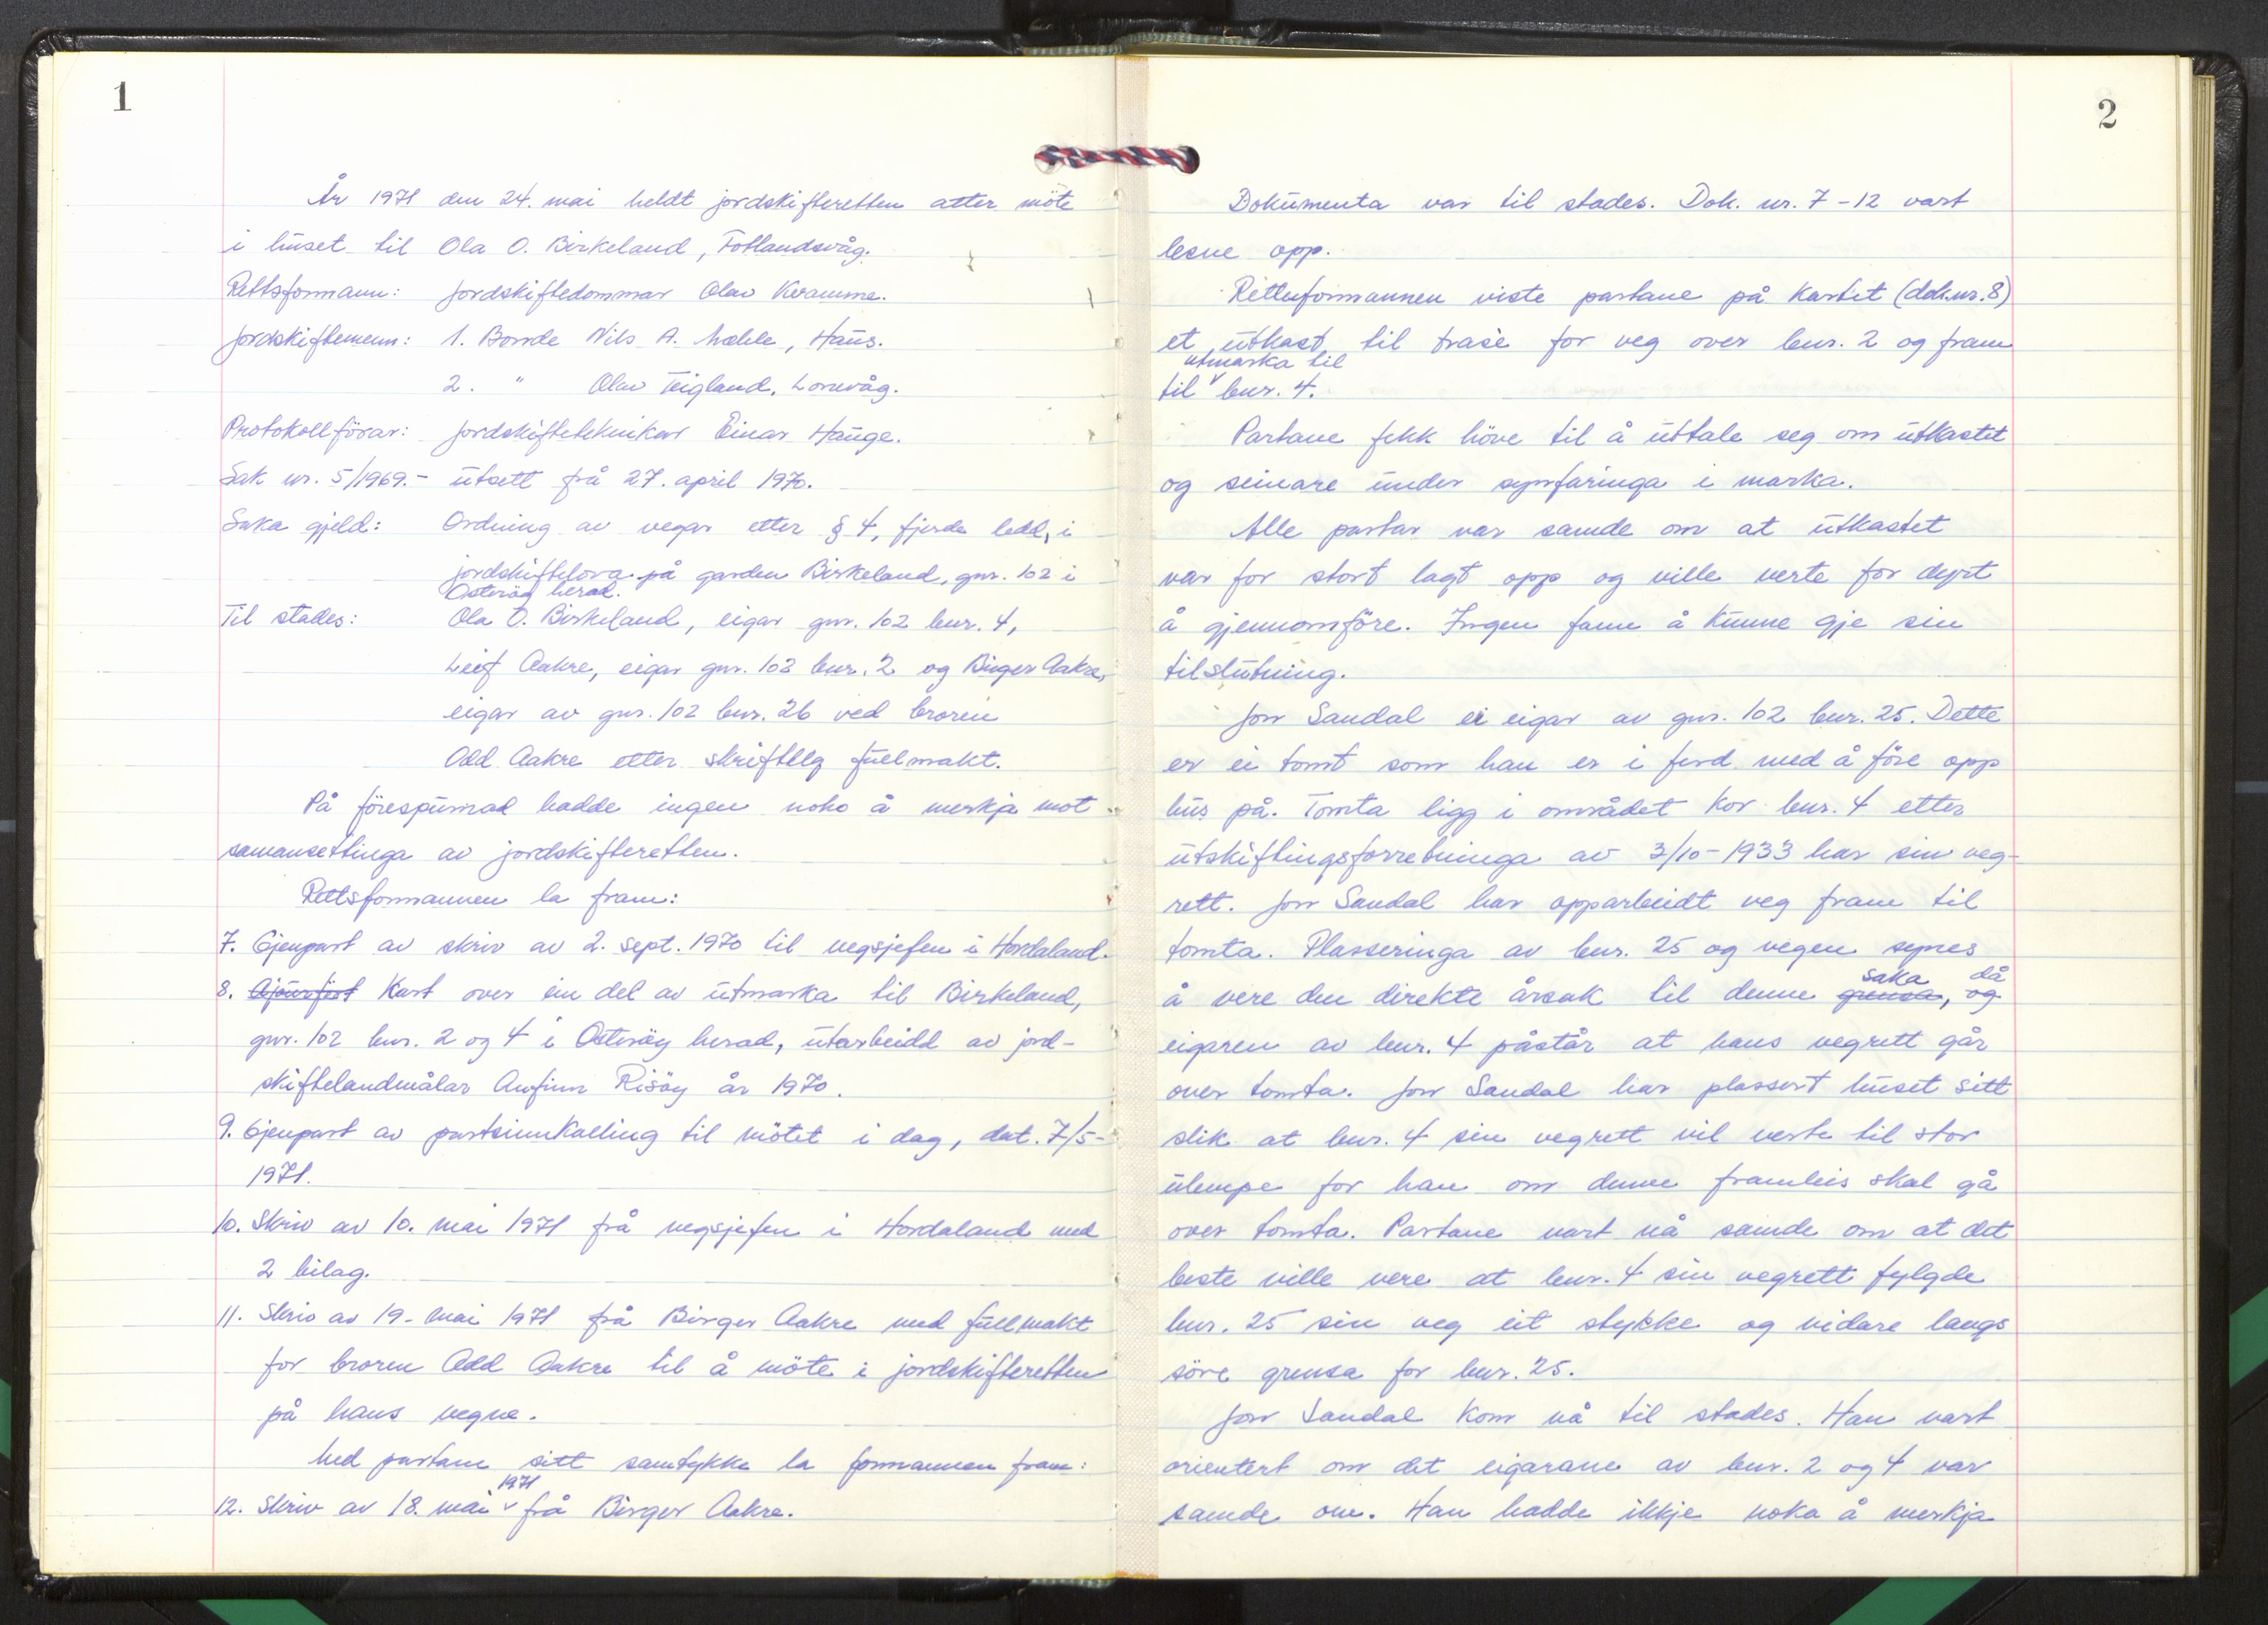 1
År 1971 den 24. mai heldt jordskifteretten atter möte
i huset til Ola O. Birkeland, Fotlandsvåg.
Rettsformann: Jordskiftedommar Olav Kvamme.
Jordskiftemenn: 1. Bonde Nils A. Mæhle, Haus.
2. " Olav Teigland, Lonevåg.
Protokollförar: Jordskifteteknikar Einar Hauge.
Sak nr. 5/1969.- utsett frå 27. april 1970.
Saka gjeld: Ordning av vegar etter § 4, fjerde ledd, i
jordskiftelova på garden Birkeland, gnr. 102 i
Osteröy herad.
Til stades: Ola O. Birkeland, eigar gnr. 102 bnr. 4,
Leif Aakre, eigar gnr. 102 bnr. 2 og Birger Aakre,
eigar av gnr. 102 bnr. 26 ved broren
Odd Aakre etter skriftleg fullmakt.
På förespurnad hadde ingen noko å merkja mot
samansettinga av jordskifteretten.
Rettsformannen la fram:
7. Gjenpart av skriv av 2. sept. 1970 til vegsjefen i Hordaland.
8. Ajourfört Kart over ein del av utmarka til Birkeland,
gnr. 102 bnr. 2 og 4 i Osteröy herad, utarbeidd av jord-
skiftelandmålar Anfinn Risöy år 1970.
9. Gjenpart av partsinnkalling til mötet i dag, dat. 7/5-
1971.
10. Skriv av 10. mai 1971 frå vegsjefen i Hordaland med
2 bilag.
11. Skriv av 19. mai 1971 frå Birger Aakre med fullmakt
for broren Odd Aakre til å möte i jordskifteretten
på hans vegne.
Med partane sitt samtykke la formannen fram:
1971
12. Skriv av 18. mai frå Birger Aakre.
2
Dokumenta var til stades. Dok. nr. 7-12 vart
lesne opp.
Rettsformannen viste partane på kartet (dok.nr. 8)
et utkast til trasè for veg over bnr. 2 og fram
utmarka til
til bnr. 4.
Partane fekk höve til å uttale seg om utkastet
og seinare under synfaringa i marka.
Alle partar var samde om at utkastet
var for stort lagt opp og ville verte for dyrt
å gjennomföre. Ingen fann å kunne gje sin
tilslutning.
Jon Sandal er eigar av gnr. 102 bnr. 25. Dette
er ei tomt som han er i ferd med å före opp
hus på. Tomta ligg i området kor bnr. 4 etter
utskiftingsforretninga av 3/10-1933 har sin veg-
rett. Jon Sandal har opparbeidt veg fram til
tomta. Plasseringa av bnr. 25 og vegen synes
saka då
å vere den direkte årsak til denne grensa, og
eigaren av bnr. 4 påstår at hans vegrett går
over tomta. Jon Sandal har plassert huset sitt
slik at bnr. 4 sin vegrett vil verte til stor
ulempe for han om denne framleis skal gå
over tomta. Partane vart nå samde om at det
beste ville vere at bnr. 4 sin vegrett fylgde
bnr. 25 sin veg eit stykke og vidare langs
söre grensa for bnr. 25.
Jon Sandal kom nå til stades. Han vart
orientert om det eigarane av bnr. 2 og 4 var
samde om. Han hadde ikkje noka å merkja